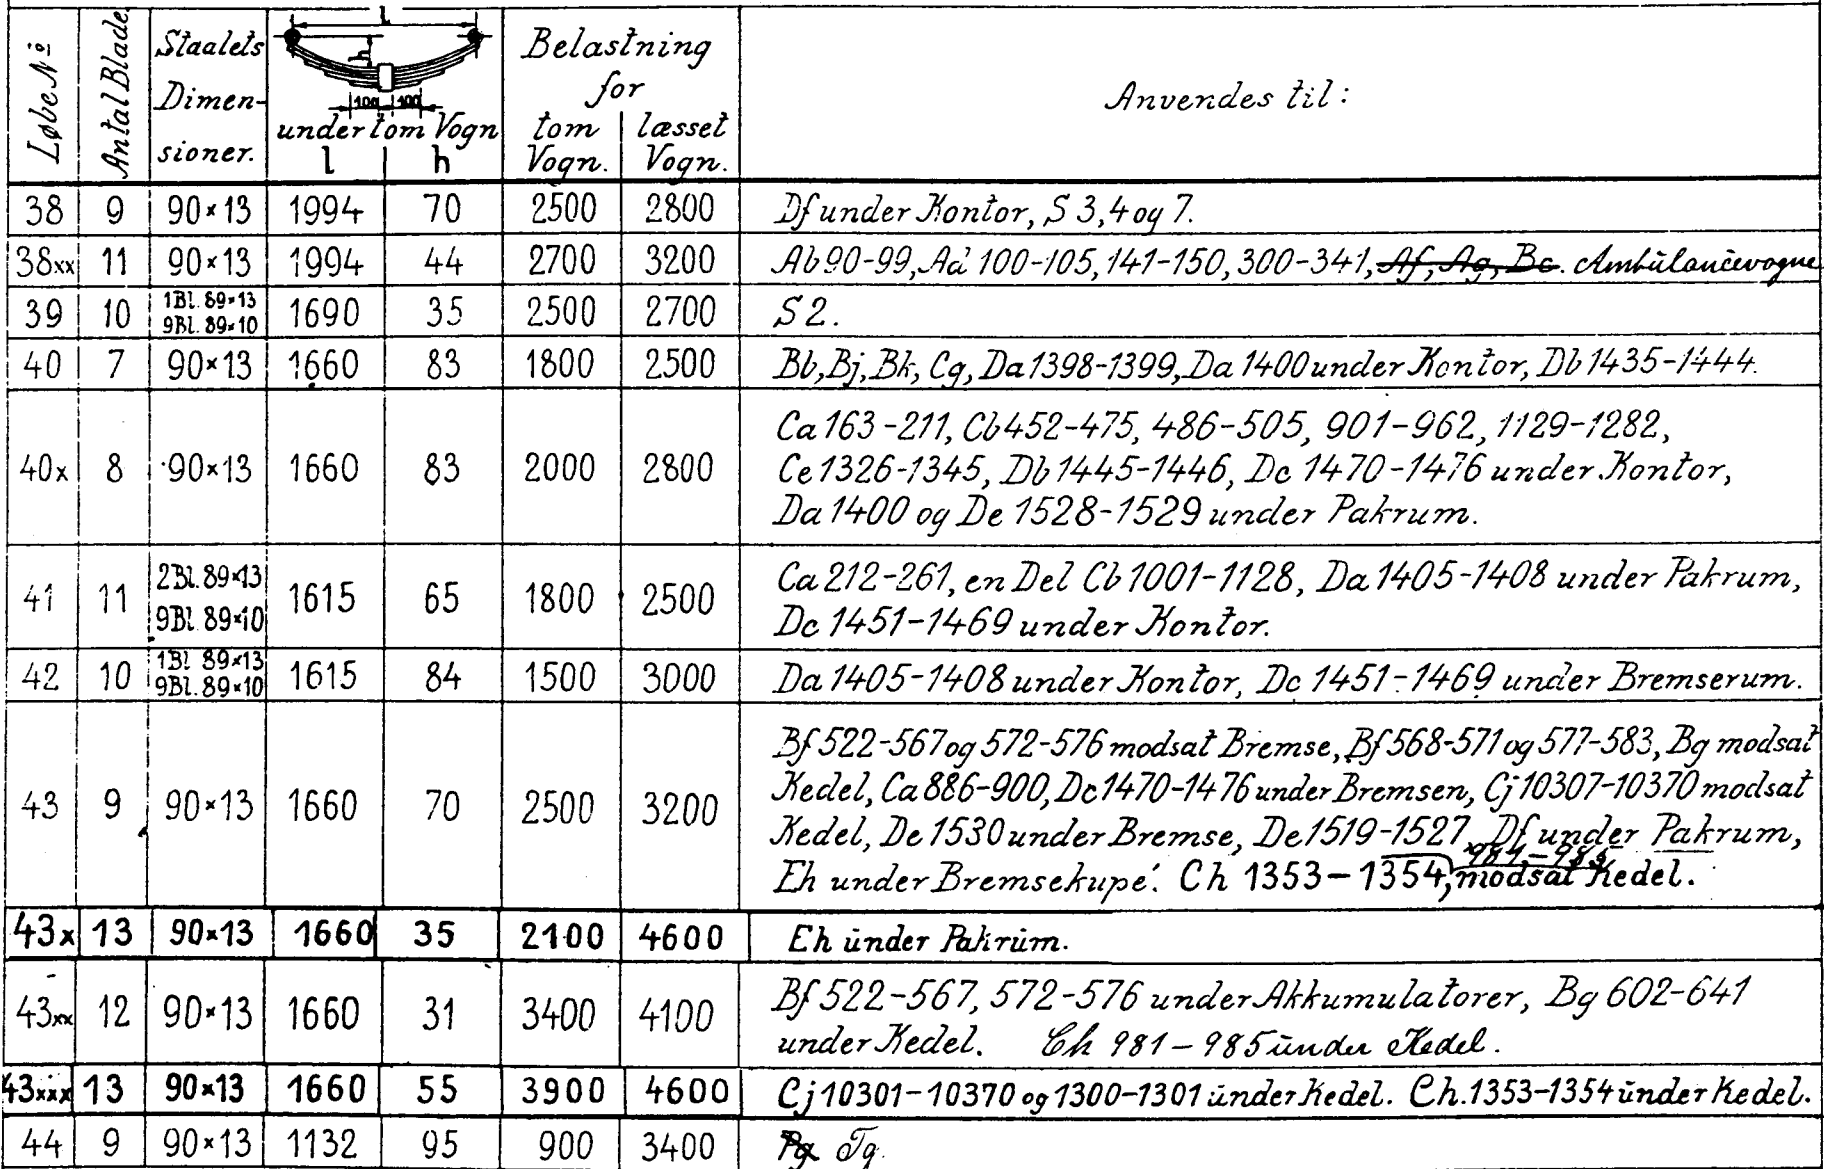 Løbe № Antal Blade. Staalets Dimensioner. L h 100 100 under tom Vogn l h Belastning for tom Vogn. læsset Vogn. Anvendes til:
38 9 90×13 1994 70 2500 2800 Df under Kontor, S 3, 4 og 7.
38xx 11 90×13 1994 44 2700 3200 Ab 90-99, Ad 100-105, 141-150, 300-341, Af, Ag, Bc. Ambulancevogne
39 10 1Bl. 89×13 9Bl. 89×10 1690 35 2500 2700 S 2.
40 7 90×13 1660 83 1800 2500 Bb, Bj, Bk, Cg, Da 1398-1399, Da 1400 under Kontor, Db 1435-1444.
40x 8 90×13 1660 83 2000 2800 Ca 163-211, Cb 452-475, 486-505, 901-962, 1129-1282,
Ce 1326-1345, Db 1445-1446, Dc 1470-1476 under Kontor,
Da 1400 og De 1528-1529 under Pakrum.
41 11 2Bl. 89×13 9Bl. 89×10 1615 65 1800 2500 Ca 212-261, en Del Cb 1001-1128, Da 1405-1408 under Pakrum,
Dc 1451-1469 under Kontor.
42 10 1Bl 89×13 9Bl. 89×10 1615 84 1500 3000 Da 1405-1408 under Kontor, Dc 1451-1469 under Bremserum.
43 9 90×13 1660 70 2500 3200 Bf 522-567 og 572-576 modsat Bremse, Bf 568-571 og 577-583, Bg modsat
Kedel, Ca 886-900, Dc 1470-1476 under Bremsen, Cj 10307-10370 modsat
Kedel, De 1530 under Bremse, De 1519-1527, Df under Pakrum,
984-985
Eh under Bremsekupé. Ch 1353-1354, modsat Kedel.
43x 13 90×13 1660 35 2100 4600 Eh under Pakrum.
43xx 12 90×13 1660 31 3400 4100 Bf 522-567, 572-576 under Akkumulatorer, Bg 602-641
under Kedel. Ch 981-985 under Kedel.
43xxx 13 90×13 1660 55 3900 4600 Cj 10301-10370 og 1300-1301 under Kedel. Ch. 1353-1354 under Kedel.
44 9 90×13 1132 95 900 3400 Pg Tg.